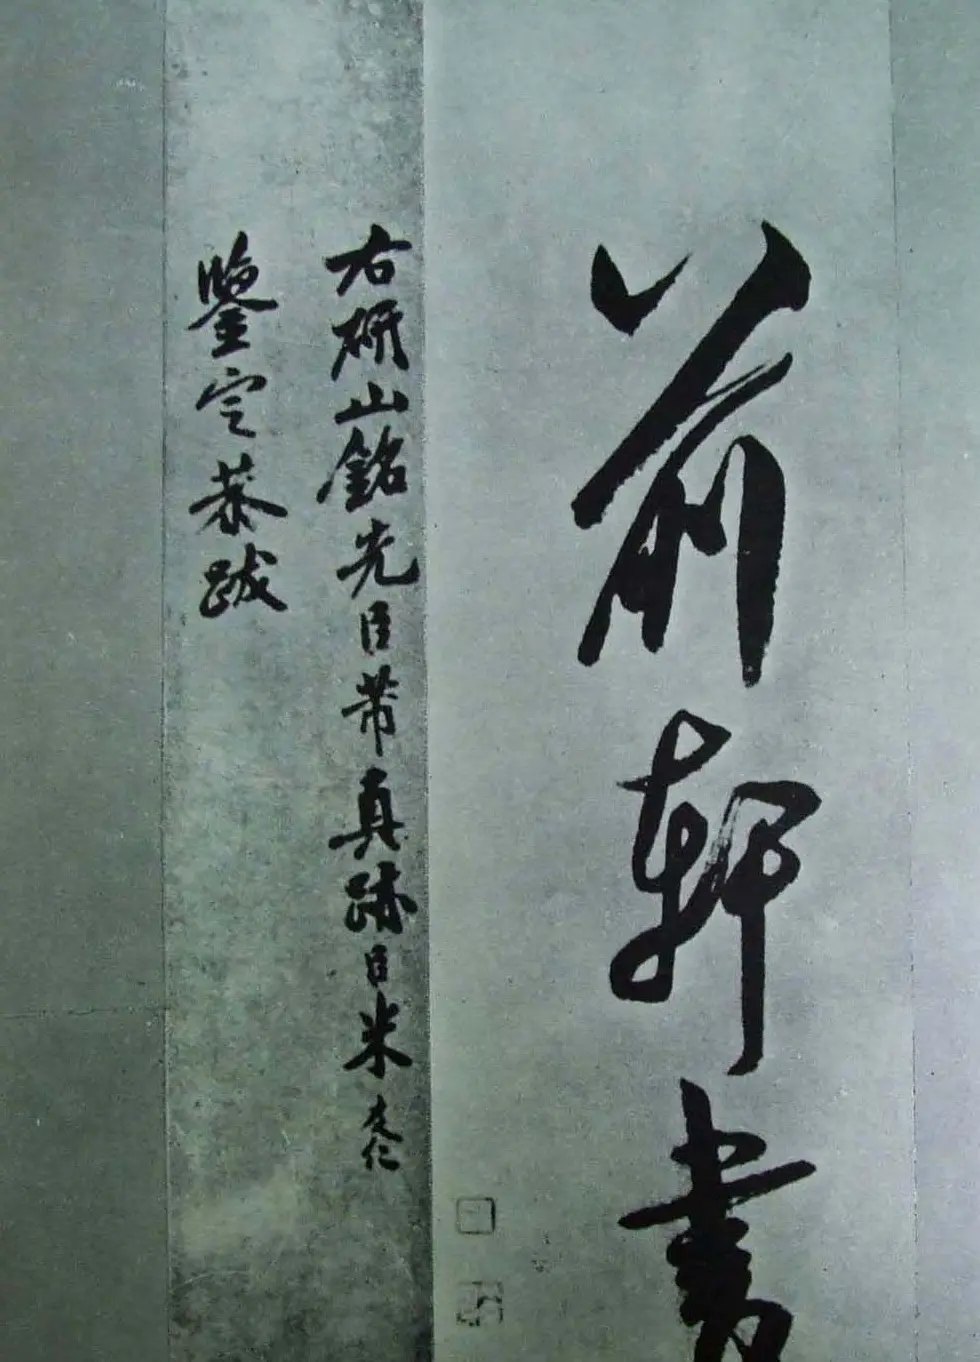 前軒書
右研山銘先臣芾真跡臣米友仁
鑒定恭跋